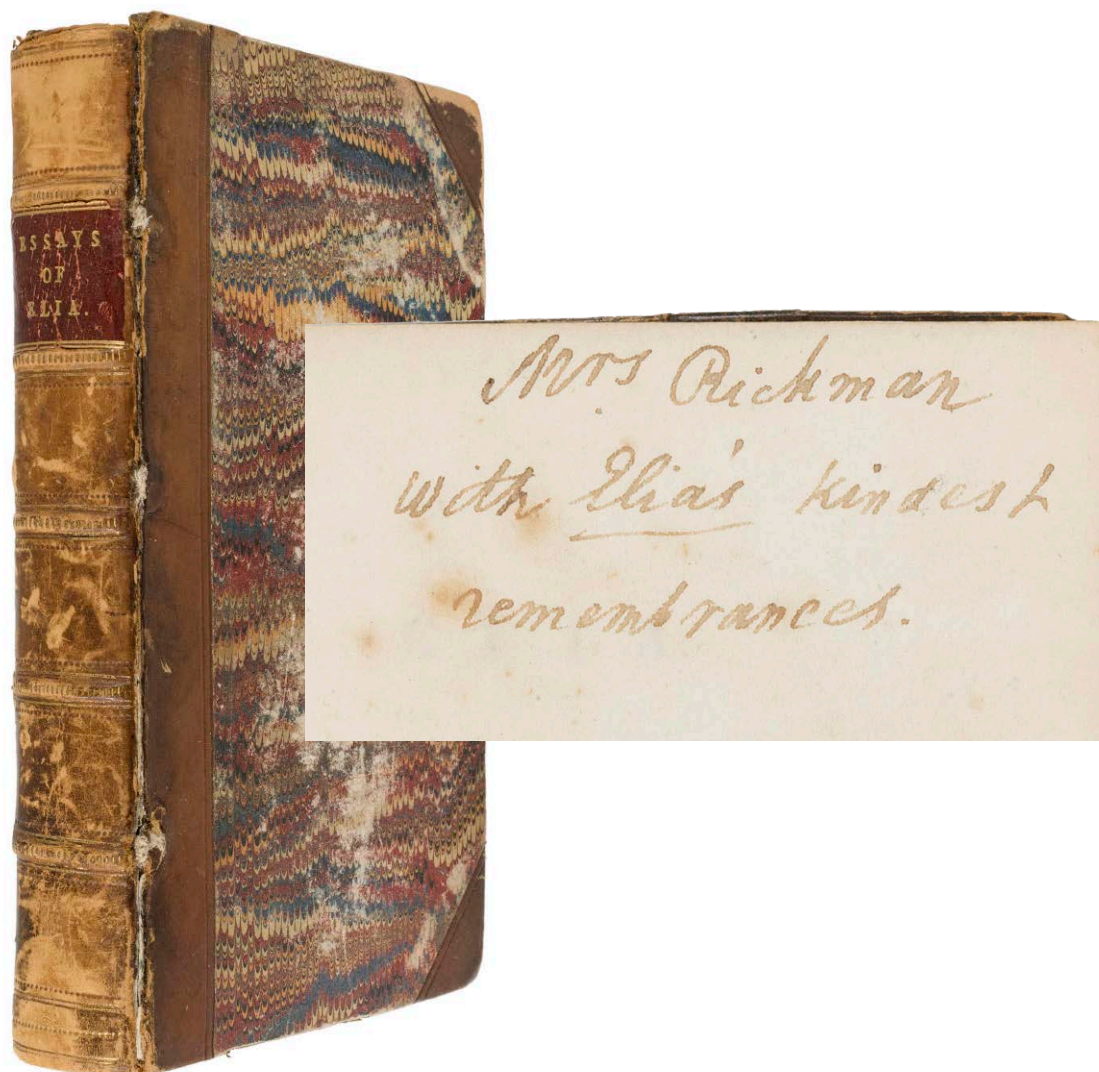 ESSAYS
OF
ELIA.
Mrs Rickman
with Elia's kindest
remembrances.